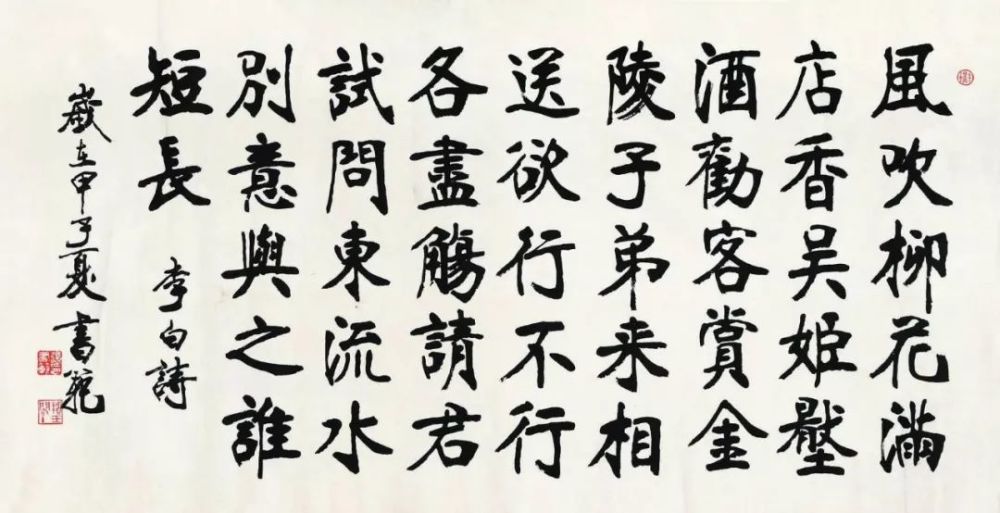 風吹柳花滿
店香吴姬壓
酒勸客賞金
陵子弟来相
送欲行不行
各盡觴請君
試問東流水
別意與之誰
短長
李白詩
歲在甲子夏書